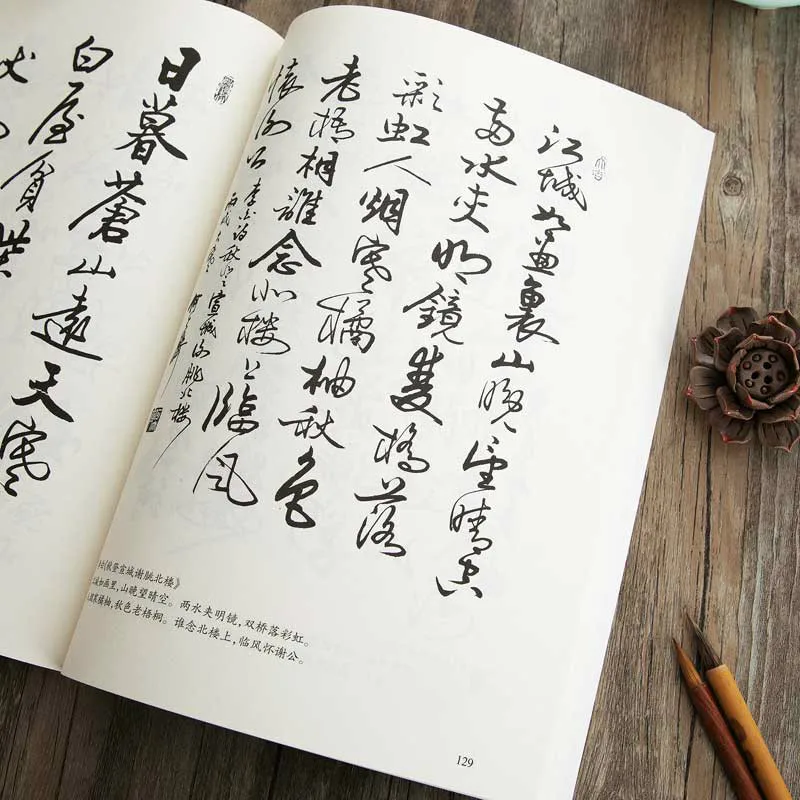 江城如畫裏山晚望晴空
兩水夾明鏡雙橋落
彩虹人烟寒橘柚秋色
老梧桐誰念北樓上臨風
懷謝公
李白詩秋登宣城謝朓北樓
白《秋登宣城谢朓北楼》
城如画里,山晚望晴空。两水夹明镜,双桥落彩虹。
烟寒橘柚,秋色老梧桐。谁念北楼上,临风怀谢公。
129
日暮蒼山遠天寒
白屋貧